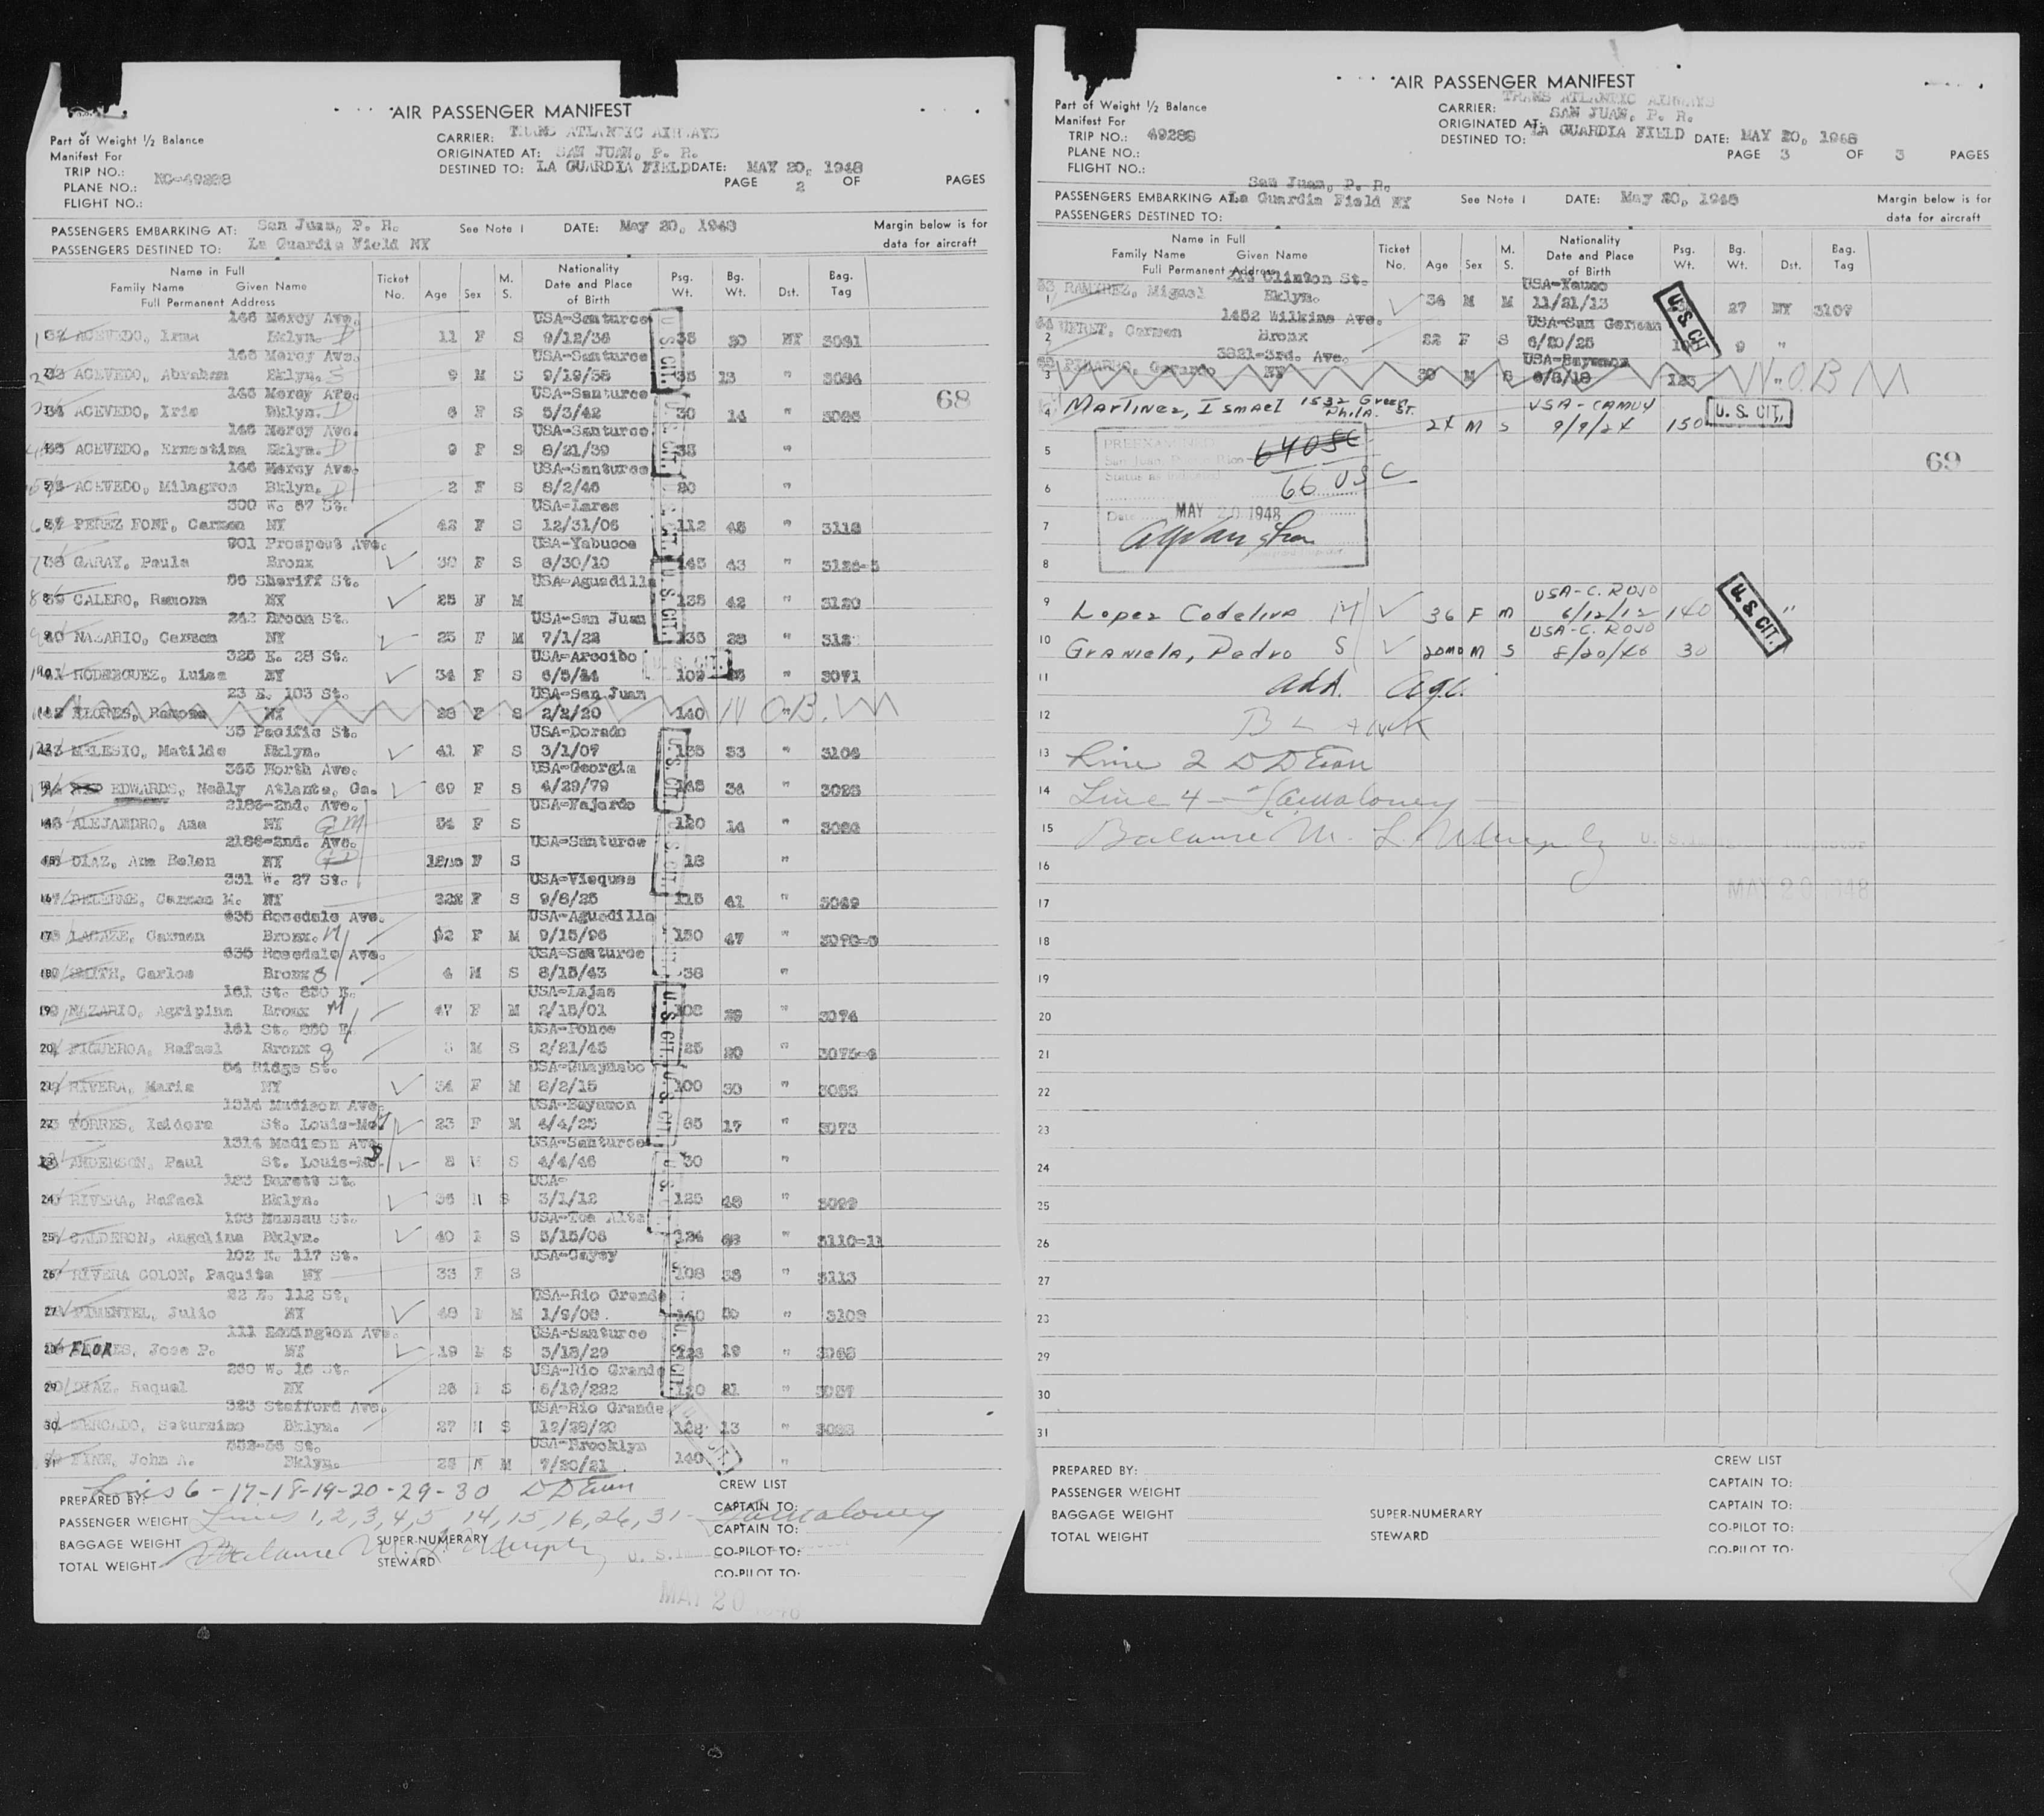 AIR PASSENGER MANIFEST
Part of Weight ½ Balance
Manifest For
TRIP NO.:
PLANE NO.: NC-49288
FLIGHT NO.:
CARRIER: TRANS ATLANTIC AIRWAYS
ORIGINATED AT: SAN JUAN, P. R.
DESTINED TO: LA GUARDIA FIELD DATE: MAY 20, 1948
PAGE 2 OF PAGES
PASSENGERS EMBARKING AT: San Juan, P. R. See Note 1 DATE: May 20, 1948 Margin below is for
PASSENGERS DESTINED TO: La Guardia Field NY data for aircraft
Name in Full Ticket M. Nationality Psg. Bg. Bag.
Family Name Given Name No. Age Sex S. Date and Place Wt. Wt. Dst. Tag
Full Permanent Address of Birth
146 Mercy Ave. USA-Santurce
ACEVEDO, Irma Bklyn. D 11 F S 9/12/36 35 30 NY 3081
146 Mercy Ave. USA-Santurce
ACEVEDO, Abraham Bklyn. S 9 M S 9/19/38 35 13 " 3084
146 Mercy Ave. USA-Santurce
68
ACEVEDO, Iris Bklyn. D 6 F S 5/3/42 30 14 " 3085
146 Mercy Ave. USA-Santurce
ACEVEDO, Ernestina Bklyn. D 9 F S 8/21/39 35 "
146 Mercy Ave. USA-Santurce
ACEVEDO, Milagros Bklyn. D 2 F S 8/2/46 20 "
300 W. 87 St. USA-Lares
PEREZ FONT, Carmen NY 42 F S 12/31/06 112 48 " 3118
901 Prospect Ave. USA-Yabucoa
GARAY, Paula Bronx 38 F S 6/30/10 145 43 "
86 Sheriff St. USA-Aguadilla
CALERO, Ramona NY 25 F M 135 42 " 3120
242 Broom St. USA-San Juan
NAZARIO, Carmen NY 25 F M 7/1/22 135 28 "
325 E. 25 St. USA-Arecibo
RODRIGUEZ, Luisa NY 34 F S 6/5/14 109 " 3071
23 E. 103 St. USA-San Juan
FLORES, Ramona NY 28 F S 2/2/20 140 N O.B.
35 Pacific St. USA-Dorado
MELESIO, Matilde Bklyn. 41 F S 3/1/07 135 33 " 3106
365 North Ave. USA-Georgia
EDWARDS, Neály Atlanta, Ga. 69 F S 4/29/79 148 34 " 3028
2186-2nd. Ave. USA-Fajardo
ALEJANDRO, Ana NY GM 54 F S 120 14 "
2186-2nd. Ave. USA-Santurce
DIAZ, Ana Belen NY GD F S 18 "
331 W. 27 St. USA-Vieques
DELERME, Carmen M. NY 22 F S 9/8/25 115 41 " 3049
635 Rosedale Ave. USA-Aguadilla
LACAZE, Carmen Bronx. M 52 F M 9/15/96 150 47 "
635 Rosedale Ave. USA-Santurce
SMITH, Carlos Bronx S 4 M S 8/15/43 38 "
161 St. 850 E. USA-Lajas
NAZARIO, Agripina Bronx M 47 F M 2/15/01 108 29 " 3074
161 St. 850 E. USA-Ponce
FIGUEROA, Rafael Bronx 3 M S 2/21/45 25 20 " 3075-6
54 Ridge St. USA-Guaynabo
RIVERA, Maria NY 34 F M 2/2/15 100 30 " 3055
1314 Madison Ave. USA-Bayamon
TORRES, Isidora St. Louis-Mo 23 F M 4/4/25 85 17 " 3073
1314 Madison Ave. USA-Santurce
ANDERSON, Paul St. Louis-Mo. S 4/4/46 30 "
USA-
RIVERA, Rafael Bklyn. 36 S 3/1/12 125 48 " 3099
193 Nassau St. USA-Toa Alta
CALDERON, Angelina Bklyn. 40 S 5/15/08 124 " 3110-11
102 E. 117 St. USA-Cayey
RIVERA COLON, Paquita NY 33 F S 108 38 " 3113
22 E. 112 St. USA-Rio Grande
PIMENTEL, Julio NY 40 M 1/9/08 140 " 3103
USA-Santurce
FLORES, Jose P. NY 19 S 3/18/29 128 19 "
260 W. 16 St. USA-Rio Grande
DIAZ, Raquel NY 26 S 6/19/222 120 21 " 3057
323 Stafford Ave. USA-Rio Grande
MERCADO, Saturnino Bklyn. 27 M S 12/28/20 13 "
552-56 St. USA-Brooklyn
FINN, John A. Bklyn. M 7/20/21 140 "
U. S. CIT.
PREPARED BY: Lines 6-17-18-19-20-29-30
PASSENGER WEIGHT Lines 1, 2, 3, 4, 5, 14, 15, 16, 26, 31-
BAGGAGE WEIGHT SUPER-NUMERARY
TOTAL WEIGHT Balance M. L. Murphy STEWARD
CREW LIST
CAPTAIN TO:
CAPTAIN TO:
CO-PILOT TO:
CO-PILOT TO:
MAY 20 1948
AIR PASSENGER MANIFEST
Part of Weight ½ Balance
Manifest For
TRIP NO.: 49288
PLANE NO.:
FLIGHT NO.:
CARRIER: TRANS ATLANTIC AIRWAYS
ORIGINATED AT: SAN JUAN, P. R.
DESTINED TO: LA GUARDIA FIELD DATE: MAY 20, 1948
PAGE 3 OF 3 PAGES
PASSENGERS EMBARKING AT: San Juan, P. R. See Note 1 DATE: May 20, 1948 Margin below is for
PASSENGERS DESTINED TO: La Guardia Field NY data for aircraft
Name in Full Ticket M. Nationality Psg. Bg. Bag.
Family Name Given Name No. Age Sex S. Date and Place Wt. Wt. Dst. Tag
Full Permanent Address of Birth
Clinton St. USA-Yauco
1 RAMIREZ, Miguel Bklyn. 34 M M 11/21/13 27 NY 3107
1452 Wilkins Ave. USA-San German
2 UFRET, Carmen Bronx 22 F S 6/20/25 9 "
3821-3rd. Ave. USA-Bayamon
3 Gerardo NY M S 125 " N.O.B
4 Martinez, Ismael 1532 Green St. Phila. 24 M S USA-CAMUY 9/9/24 150 U. S. CIT.
69
5
6
7
8
PREEXAMINED
San Juan, Puerto Rico
Status as indicated
64 USC
66 USC
Date MAY 20 1948
9 Lopez Codeliva M 36 F M USA-C. ROJO 6/12/12 140 "
10 Graniela, Pedro S 20 MO M S USA-C. ROJO 8/20/46 30
U. S. CIT.
11 add.
12
13 Line 2
14 Line 4
15 Balance M. L. Murphy
16
MAY 20 1948
17
18
19
20
21
22
23
24
25
26
27
28
29
30
31
PREPARED BY:
PASSENGER WEIGHT
BAGGAGE WEIGHT SUPER-NUMERARY
TOTAL WEIGHT STEWARD
CREW LIST
CAPTAIN TO:
CAPTAIN TO:
CO-PILOT TO:
CO-PILOT TO: